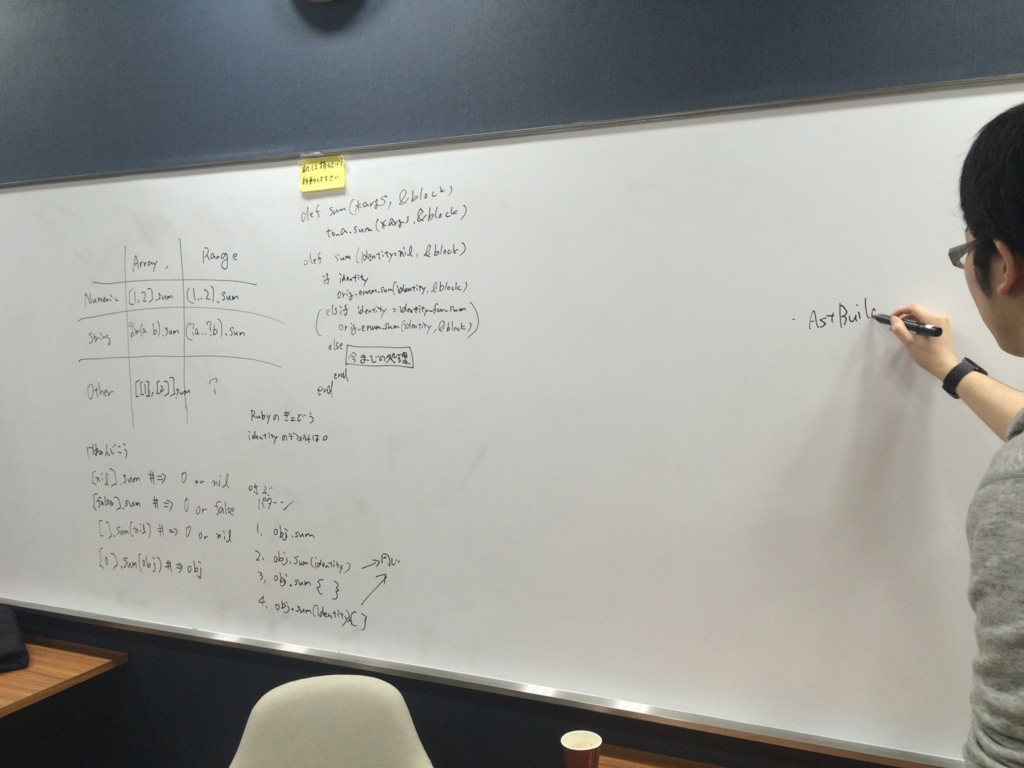 def sum(*args, &block)
to_a.sum(*args, &block)
def sum (identity=nil, &block)
if identity
orig_enum_sum(identity, &block)
elsif identity = identity-for-sum
orig_enum_sum(identity, &block)
else
今までの処理
end
end
Array. Range
Numeric [1,2].sum (1..2).sum
String %w(a b).sum (?a..?b).sum
Other [[1],[2]].sum ?
Rubyの きょどう
identity のデフォルトは 0
[nil].sum #=> 0 or nil
[false].sum #=> 0 or false
[ ].sum(nil) #=> 0 or nil
[0].sum(obj) #=> obj
パターン
1. obj.sum
2. obj.sum(identity)
3. obj.sum { }
4. obj.sum(identity){ }
同じ
· AstBuil